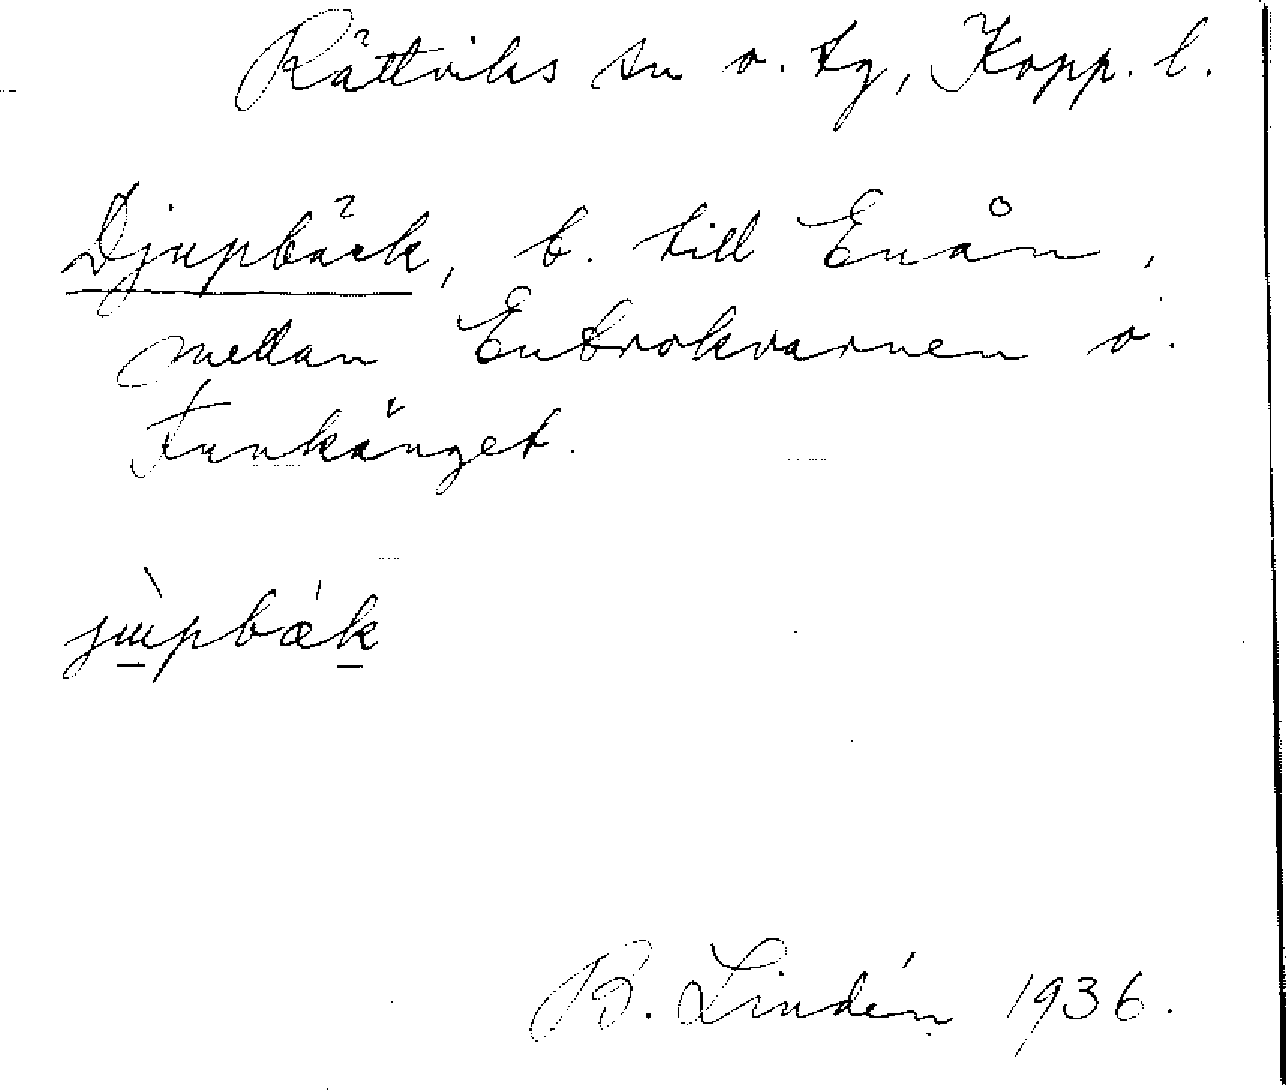 Rättviks sn o. tg, Kopp. l.
Djupbäck, b. till Enån,
mellan Enbrokvarnen o.
Funkänget.
jùpbǽk
B. Lindén 1936.